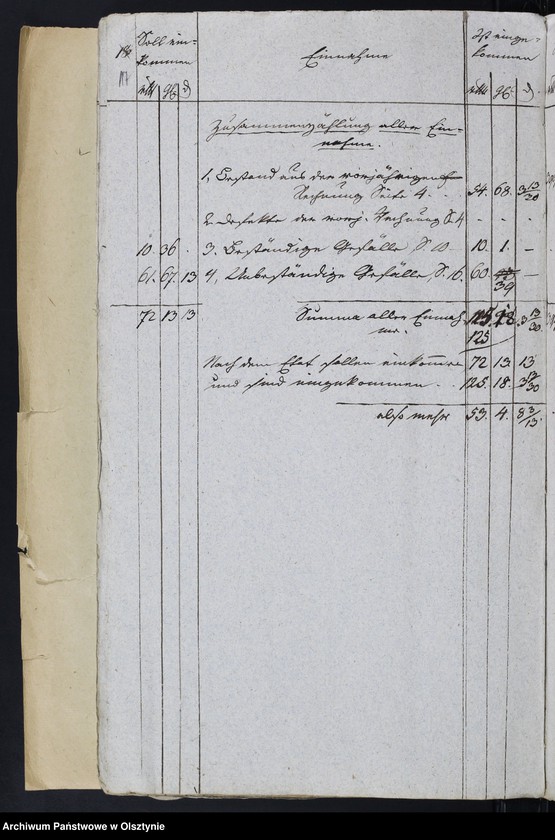 Soll ein- Einnahme Ist einge-
kommen kommen
rtl gr d rtl gr d
Zusammenzählung aller Ein-
nahme.
1, Bestand aus der vorjährigen
Rechnung Seite 4. 54. 68. 3 13/30
2. Defekte der vorj. Rechnung S. 4 - - -
10 36 . 3. Beständige Gefälle, S. 10. 10. 1. -
61. 67. 13 4, Unbeständige Gefälle, S. 16. 60. 39 -
72 13 13 Summa aller Einnah- 125. 18. 3 13/30
me. 125
Nach dem Etat sollen einkommen 72 13 13
und sind eingekommen . 125. 18. 3 13/30
also mehr 53. 4.
Archiwum Państwowe w Olsztynie